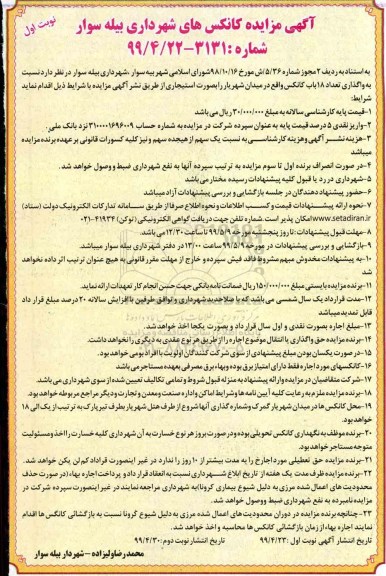 نوبت اول
آگهی مزایده کانکس های شهرداری بیله سوار
شماره :۳۱۳۱-۹۹/۴/۲۲
به استناد به ردیف ۲ مجوز شماره ۵/۳۶/ش مورخ ۹۸/۱۰/۱۶ شورای اسلامی شهر بیله سوار ،شهرداری بیله سوار در نظر دارد نسبت
به واگذاری تعداد ۱۸ باب کانکس واقع در میدان شهریار را بصورت استیجاری از طریق نشر آگهی مزایده با شرایط ذیل اقدام نماید
شرایط:
۱-قیمت پایه کارشناسی سالانه به مبلغ ۳۰/۰۰۰/۰۰۰ ریال می باشد
۲-واریز نقدی ۵ درصد قیمت پایه به عنوان سپرده شرکت در مزایده به شماره حساب ۳۱۰۰۰۰۱۶۹۶۰۰۹ نزد بانک ملی.
۳-هزینه نشر آگهی و هزینه کارشناسی به نسبت یک سهم از هیجده سهم و نیز کلیه کسورات قانونی بر عهده برنده مزایده
میباشد
۴-در صورت انصراف برنده اول تا سوم مزایده به ترتیب سپرده آنها به نفع شهرداری ضبط و وصول خواهد شد.
۵-شهرداری در رد یا قبول کلیه پیشنهادات رسیده مختار می باشد
۶-حضور پیشنهاد دهندگان در جلسه بازگشایی و بررسی پیشنهادات آزاد میباشد
۷-نحوه ارائه پیشنهادات قیمت و کسب اطلاعات و نحوه اطلاع صرفا از طریق سامانه تدارکات الکترونیک دولت (ستاد)
www.setadiran.ir امکان پذیر است.شماره تلفن جهت دریافت گواهی الکترونیکی (توکن) ۴۱۹۳۴-۰۲۱
۸-مهلت قبول پیشنهادات : تا روز پنجشنبه مورخه ۹۹/۵/۹ تا ساعت ۱۲/۳۰ می باشد.
۹-بازگشایی و بررسی پیشنهادات در مورخه ۹۹/۵/۹ ساعت ۱۳/۰۰ در دفتر شهرداری بیله سوار میباشد.
۱۰-به پیشنهادات مخدوش مبهم مشروط فاقد فیش سپرده و خارج از مهلت مقرر قانونی به هیچ عنوان ترتیب اثر داده نخواهد
شد
۱۱-برنده مزایده بایستی مبلغ ۱۵۰/۰۰۰/۰۰۰ ریال ضمانت نامه بانکی جهت حسن انجام کار تعهدات ارائه نماید.
۱۲-مدت قرارداد یک سال شمسی می باشد که با صلاحدید شهرداری و توافق طرفین با افزایش سالانه ۲۰ درصد مبلغ قرار داد
قابل تمدید میباشد
۱۳-مبلغ اجاره بصورت نقدی و اول سال قرار داد و بصورت یکجا اخذ خواهد شد.
۱۴-برنده مزایده حق واگذاری یا انتقال موضوع اجاره را از طریق هر نوع عقدی به دیگری را نخواهد داشت.
۱۵-در صورت یکسان بودن مبلغ پیشنهادی از سوی شرکت کنندگان اولویت با افراد بومی خواهد بود.
۱۶-کانکسهای مورد اجاره فقط دارای امتیاز برق بوده و بهاء برق مصرفی بعهده مستاجر می باشد
۱۷-شرکت متقاضیان در مزایده و ارائه پیشنهاد به منزله قبول شروط و تمامی تکالیف تعیین شده از سوی شهرداری می باشد.
۱۸-برنده مزایده ملزم به رعایت کلیه آیین نامه ها و شرایط اماکن و اداره صنعت و معدن و تجارت و دیگر مراجع مربوطه خواهد بود.
۱۹-محل کانکس ها در میدان شهریار گمرک و شماره گذاری آنها شروع از طرف هتل شهریار بطرف تیر پارک به ترتیب از یک الی ۱۸
خواهد بود.
۲۰-برنده موظف به نگهداری کانکس تحویلی بوده و در صورت بروز هر نوع خسارت به آن شهرداری کلیه خسارت را اخذ و مسئولیت
متوجه مستاجر خواهد بود.
۲۱-برنده مزایده حق تعطیلی مورد اجاره را به مدت بیشتر از ۱۰ روز را ندارد در غیر اینصورت قرارداد کم لن یکن خواهد شد.
۲۲-برنده مزایده ظرف مدت یک هفته از تاریخ ابلاغ شهرداری نسبت به انعقاد قرار داد و پرداخت اجاره بهاء (در صورت حذف
محدودیت های اعمال شده مرزی به دلیل شیوع بیماری کرونا) به شهرداری مراجعه نمایند در غیر اینصورت سپرده شرکت در
مزایده نامبرده به نفع شهرداری ضبط و وصول خواهد شد.
۲۳-چنانچه برنده مزایده در دوران محدودیت های اعمال شده مرزی به دلیل شیوع کرونا نسبت به بازگشائی کانکس ها اقدام
نمایند اجاره بهاء از زمان بازگشائی کانکس ها محاسبه و اخذ خواهد شد.
تاریخ انتشار آگهی نوبت اول :۹۹/۴/۲۳ تاریخ انتشار نوبت دوم :۹۹/۴/۳۰
محمد رضا ولیزاده – شهردار بیله سوار